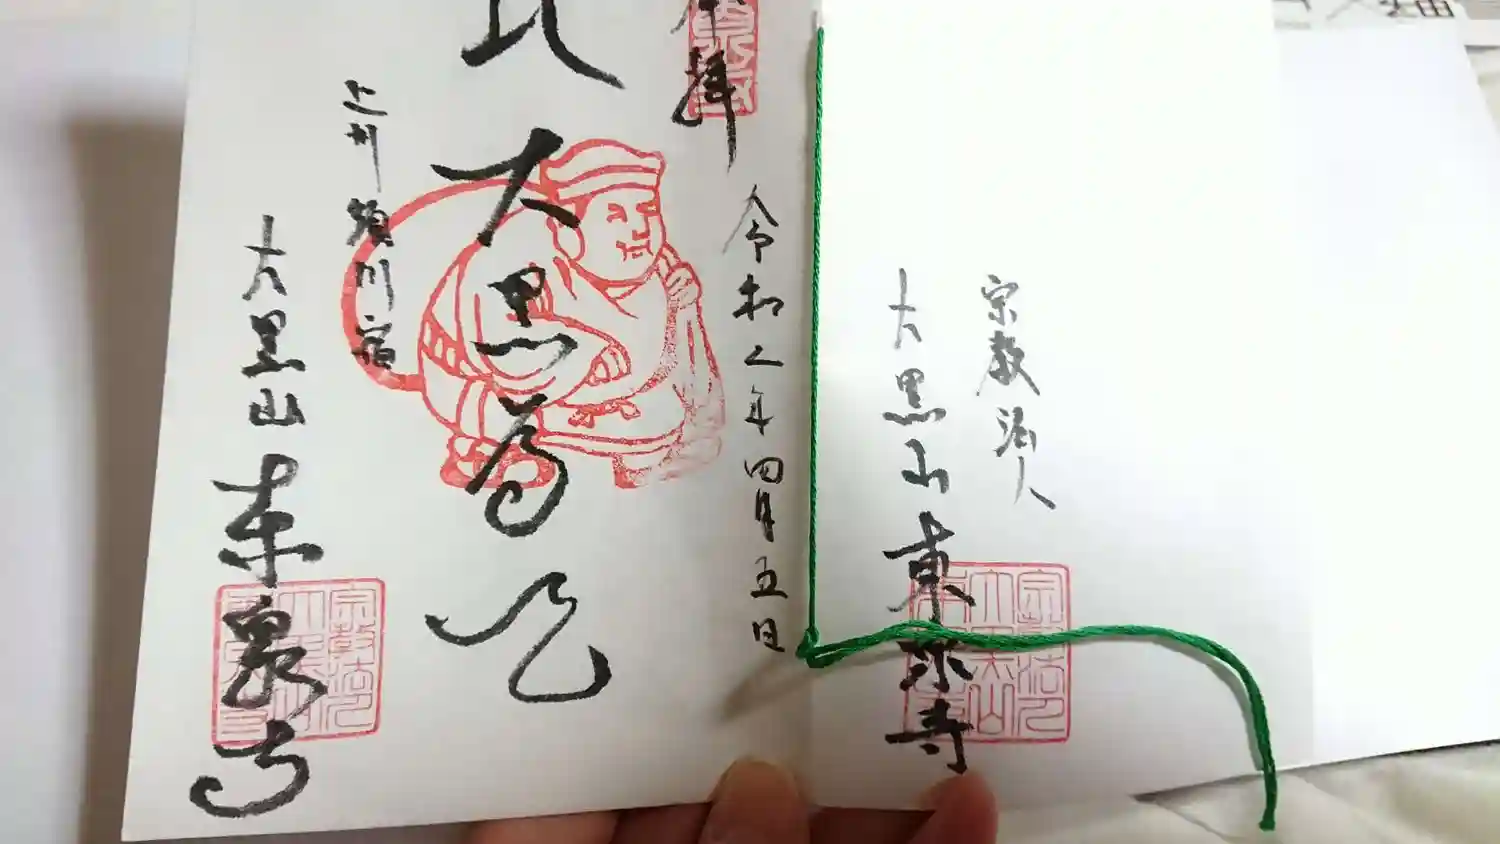 宗教法人
大黒山東泉寺
奉拝
令和二年四月五日
大黒尊天
上州須川宿
大黒山
東泉寺